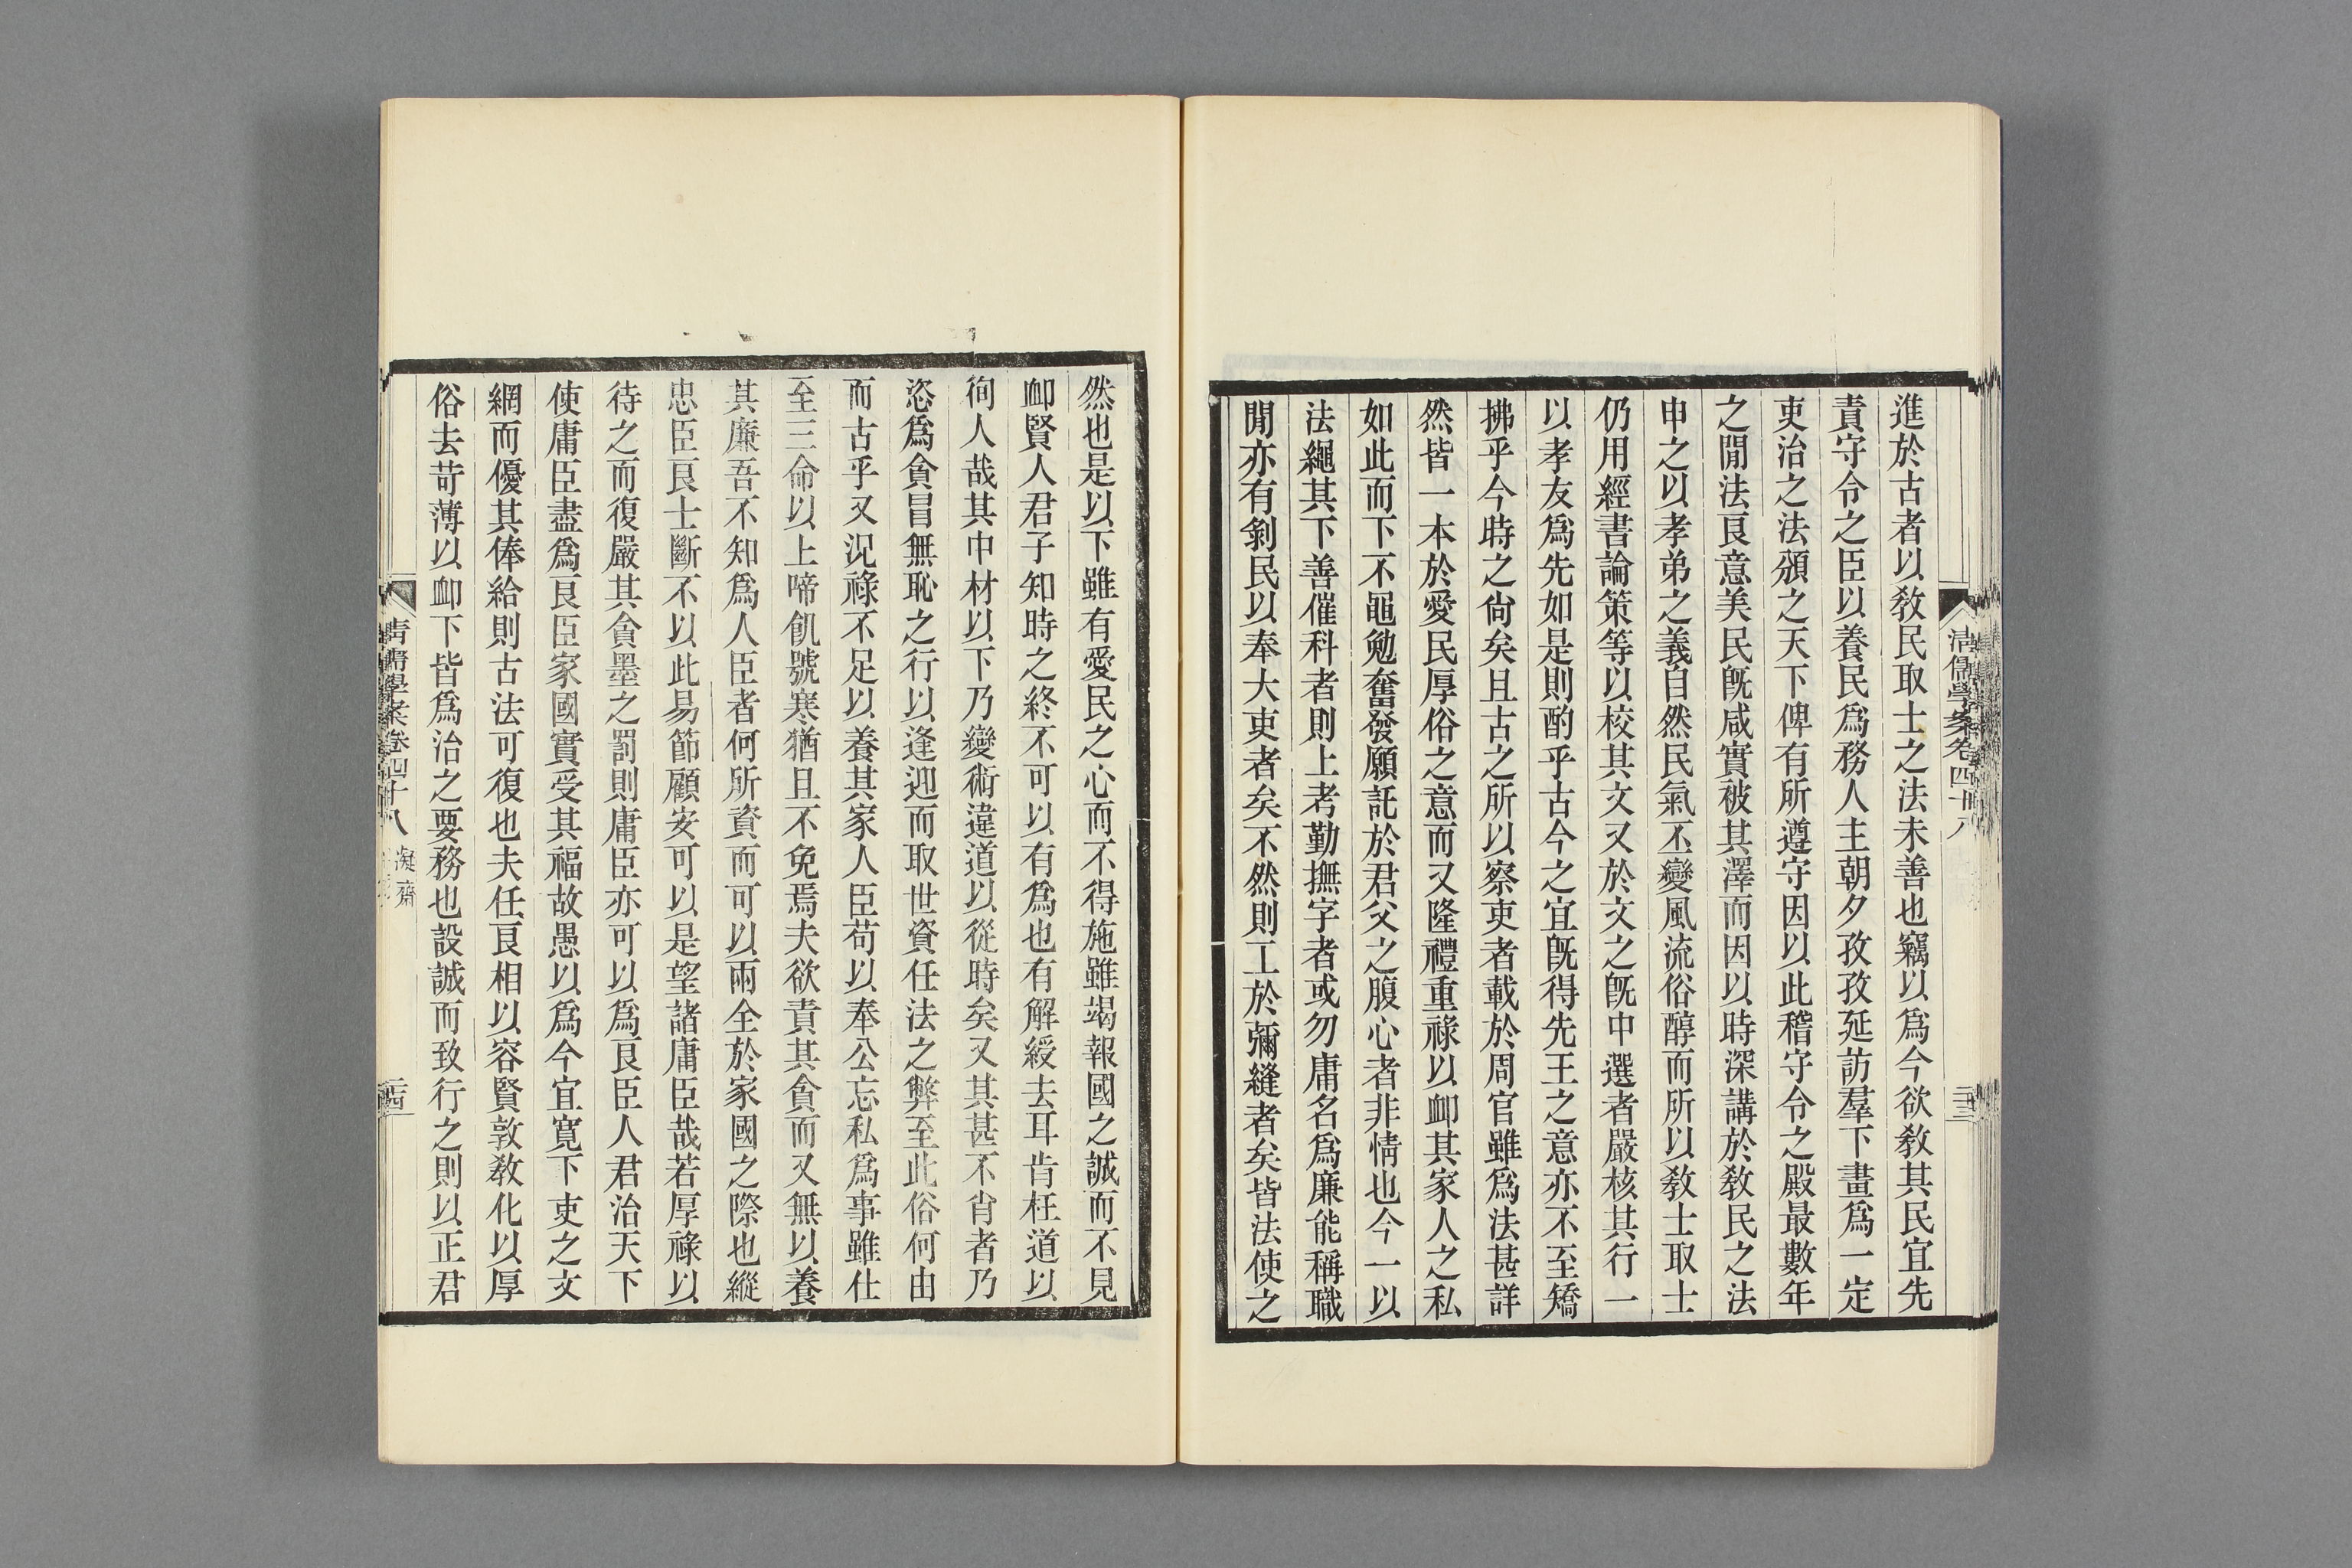 清儒學案卷四十八
進於古者以敎民取士之法未善也竊以爲今欲敎其民宜先
責守令之臣以養民爲務人主朝夕孜孜延訪羣下畫爲一定
吏治之法頒之天下俾有所遵守因以此稽守令之殿最數年
之閒法良意美民旣咸實被其澤而因以時深講於敎民之法
申之以孝弟之義自然民氣丕變風流俗醇而所以敎士取士
仍用經書論策等以校其文又於文之旣中選者嚴核其行一
以孝友爲先如是則酌乎古今之宜旣得先王之意亦不至矯
拂乎今時之尙矣且古之所以察吏者載於周官雖爲法甚詳
然皆一本於愛民厚俗之意而又隆禮重祿以卹其家人之私
如此而下不黽勉奮發願託於君父之腹心者非情也今一以
法繩其下善催科者則上考勤撫字者或勿庸名爲廉能稱職
閒亦有剝民以奉大吏者矣不然則工於彌縫者矣皆法使之
然也是以下雖有愛民之心而不得施雖竭報國之誠而不見
卹賢人君子知時之終不可以有爲也有解綬去耳肯枉道以
徇人哉其中材以下乃變術違道以從時矣又其甚不肖者乃
恣爲貪冒無恥之行以逢迎而取世資任法之弊至此俗何由
而古乎又況祿不足以養其家人臣苟以奉公忘私爲事雖仕
至三命以上啼飢號寒猶且不免焉夫欲責其貪而又無以養
其廉吾不知爲人臣者何所資而可以兩全於家國之際也縱
忠臣良士斷不以此易節顧安可以是望諸庸臣哉若厚祿以
待之而復嚴其貪墨之罰則庸臣亦可以爲良臣人君治天下
使庸臣盡爲良臣家國實受其福故愚以爲今宜寬下吏之文
網而優其俸給則古法可復也夫任良相以容賢敦敎化以厚
俗去苛薄以卹下皆爲治之要務也設誠而致行之則以正君
清儒學案卷四十八 凝齋 二十四